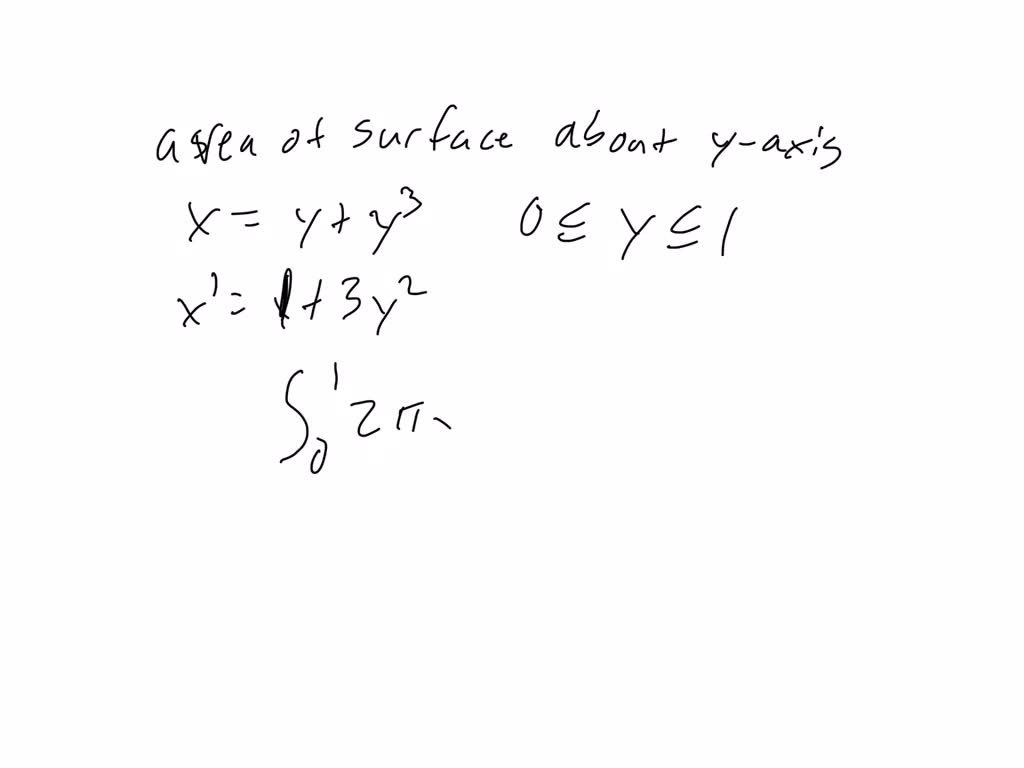 area of surface about y-axis
x = y + y³ 0 ≤ y ≤ 1
x' = 1 + 3y²
∫₀¹ 2π